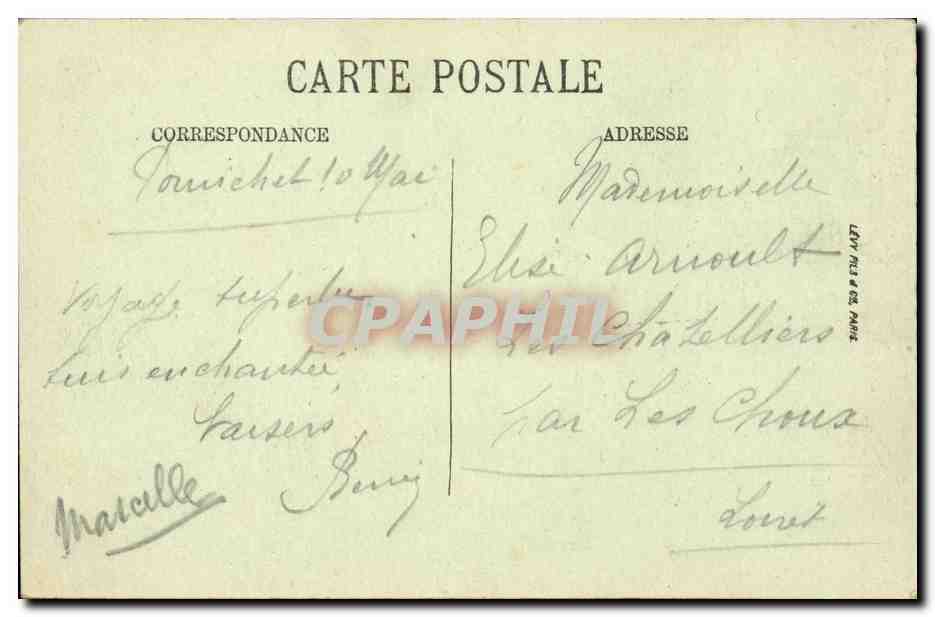 CARTE POSTALE
CORRESPONDANCE
Pornichet 10 Mai
Voyage superbe
suis enchantée
Baisers
Marcelle
ADRESSE
Mademoiselle
Elise Arnoult
Les Châtelliers
par Les Choux
Loiret
LÉVY FILS & Cie, PARIS
CPAPHIL